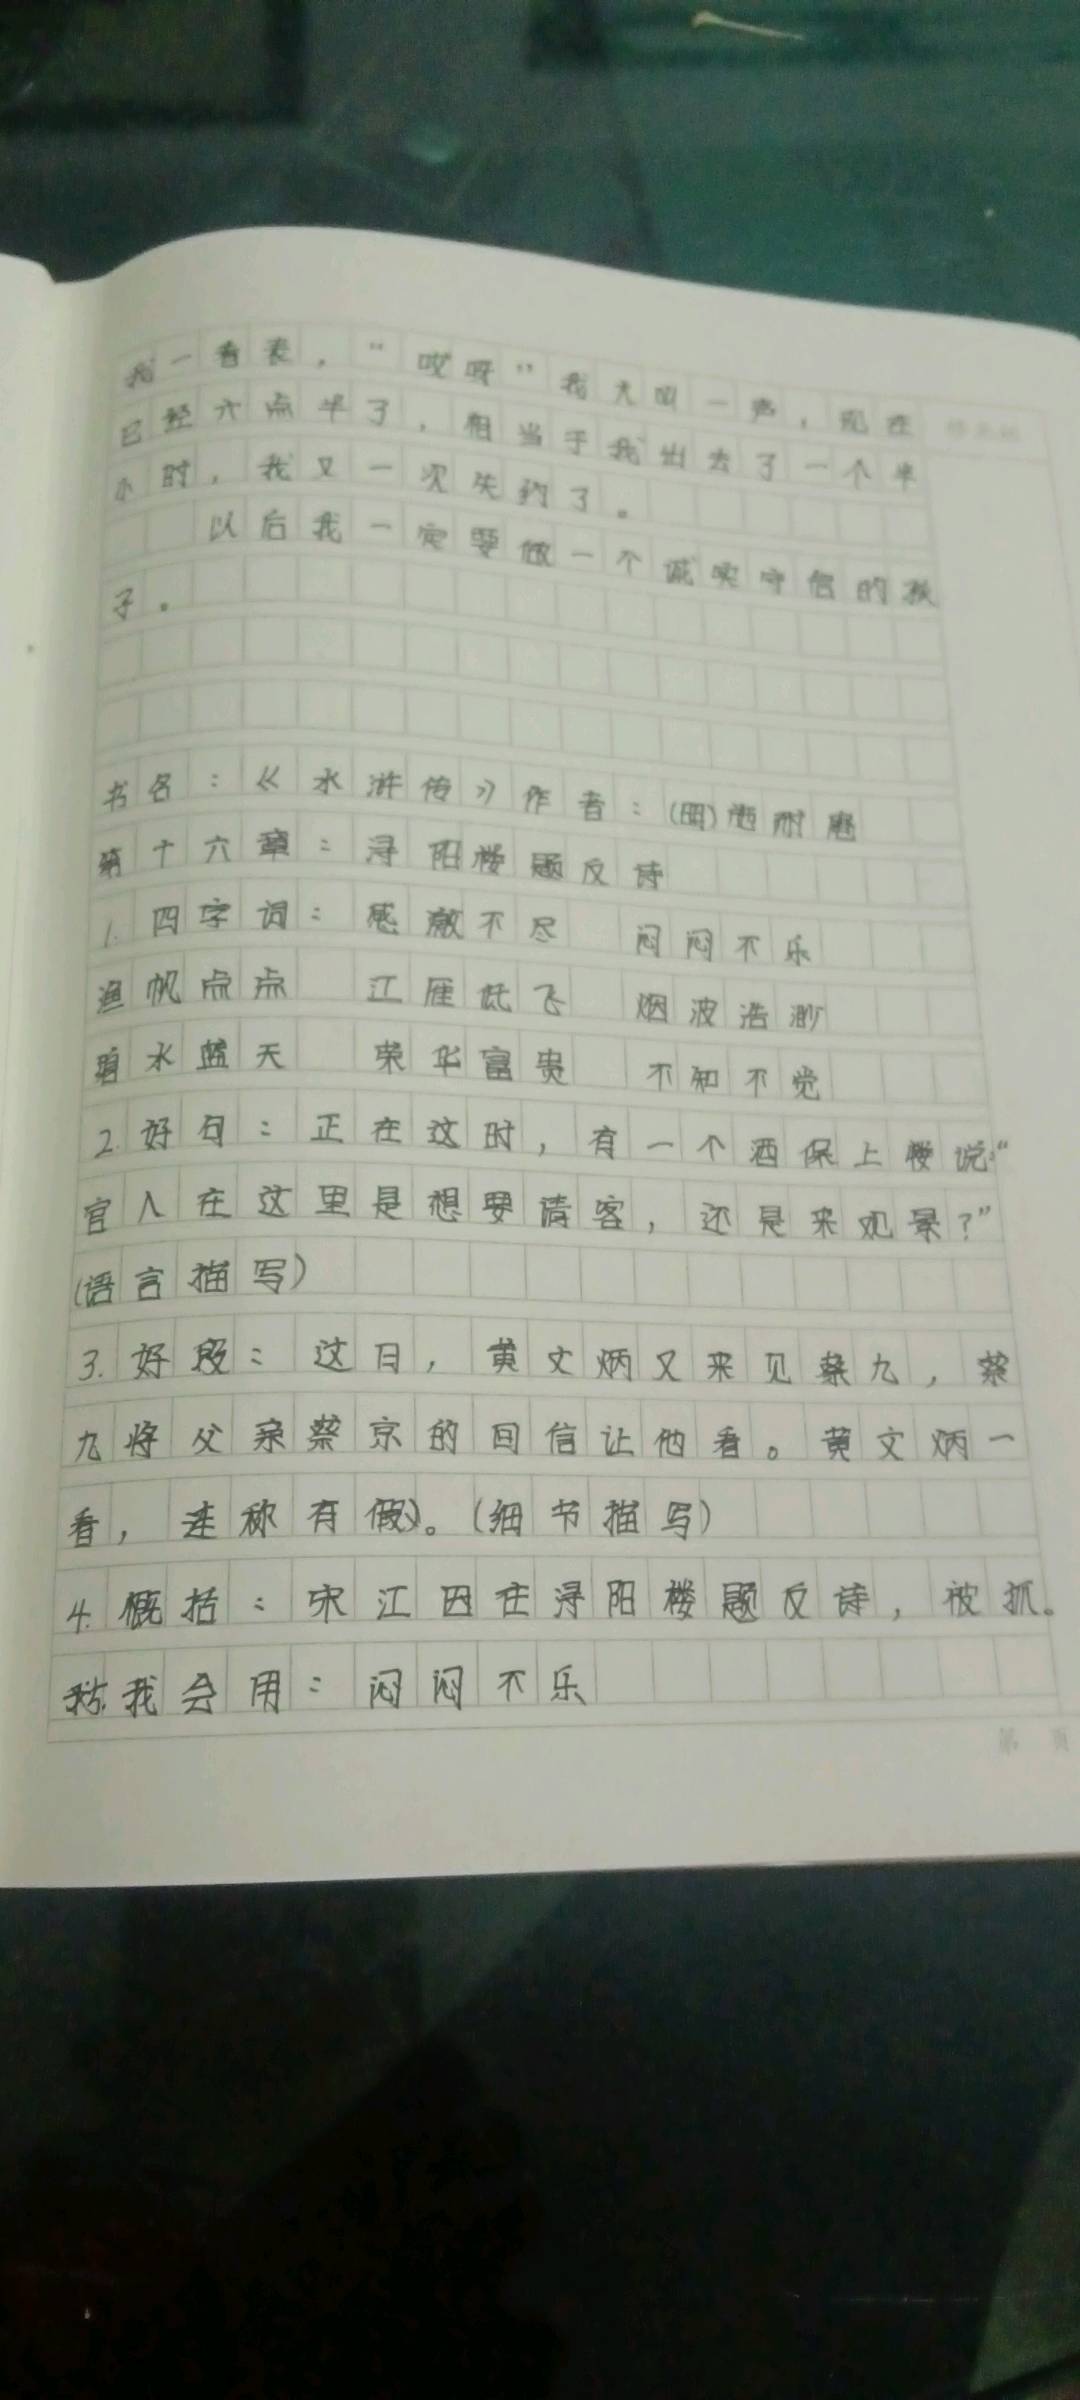 我一看表，“哎呀”我大叫一声，现在
已经六点半了，相当于我出去了一个半
小时，我又一次失约了。
以后我一定要做一个诚实守信的孩
子。
书名：《水浒传》作者：(明)施耐庵
第十六章：浔阳楼题反诗
1.四字词：感激不尽 闷闷不乐
渔帆点点 江雁低飞 烟波浩渺
碧水蓝天 荣华富贵 不知不觉
2.好句：正在这时，有一个酒保上楼说：“
官人在这里是想要请客，还是来观景？”
(语言描写)
3.好段：这日，黄文炳又来见蔡九，蔡
九将父亲蔡京的回信让他看。黄文炳一
看，连称有假。(细节描写)
4.概括：宋江因在浔阳楼题反诗，被抓。
我会用：闷闷不乐
第 页